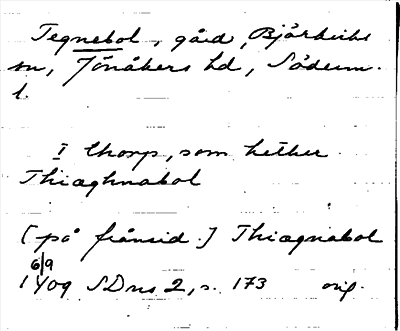 Tegnebol, gård, Björkviks
sn, Jönåkers hd, Söderm.
l.
I thorp, som hether
Thiæghnabol
[på frånsid.] Thiægnabol
6/9
1409 SDns 2, s. 173 orig.